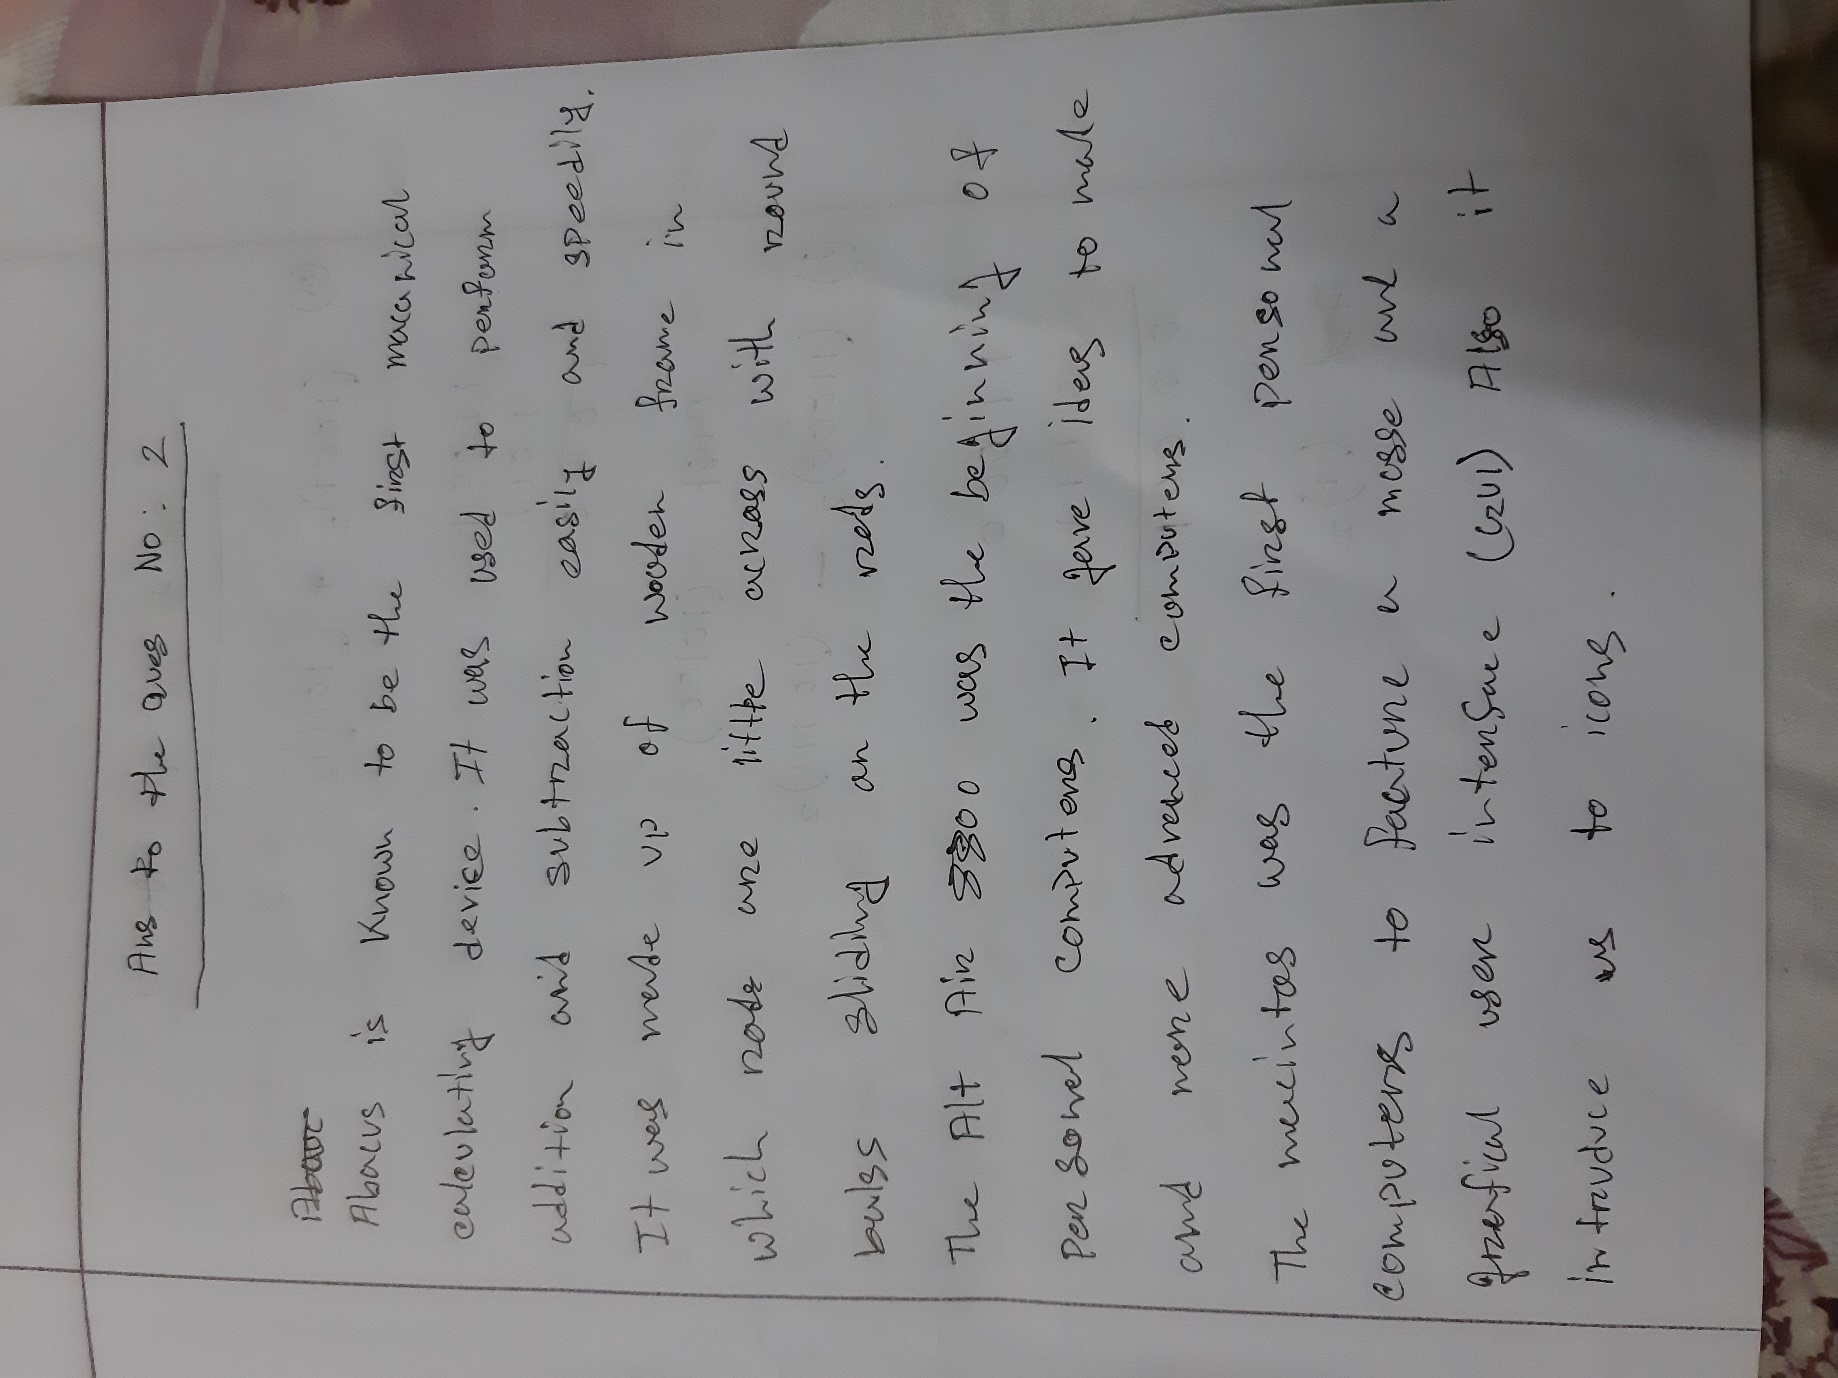 Ans to the ques No: 2
Abacus is Known to be the first macanical
calculating device. It was used to perform
addition and subtraction easily and speedily.
It was made up of wooden frame in
which rods are little across with round
balls sliding on the rods.
The Alt Air 8800 was the beginning of
personal computers. It gave ideas to make
and more advanced computers.
The macintos was the first personal
computers to feature a mosse and a
grafical user interface (GUI) Also it
introduce us to icons.